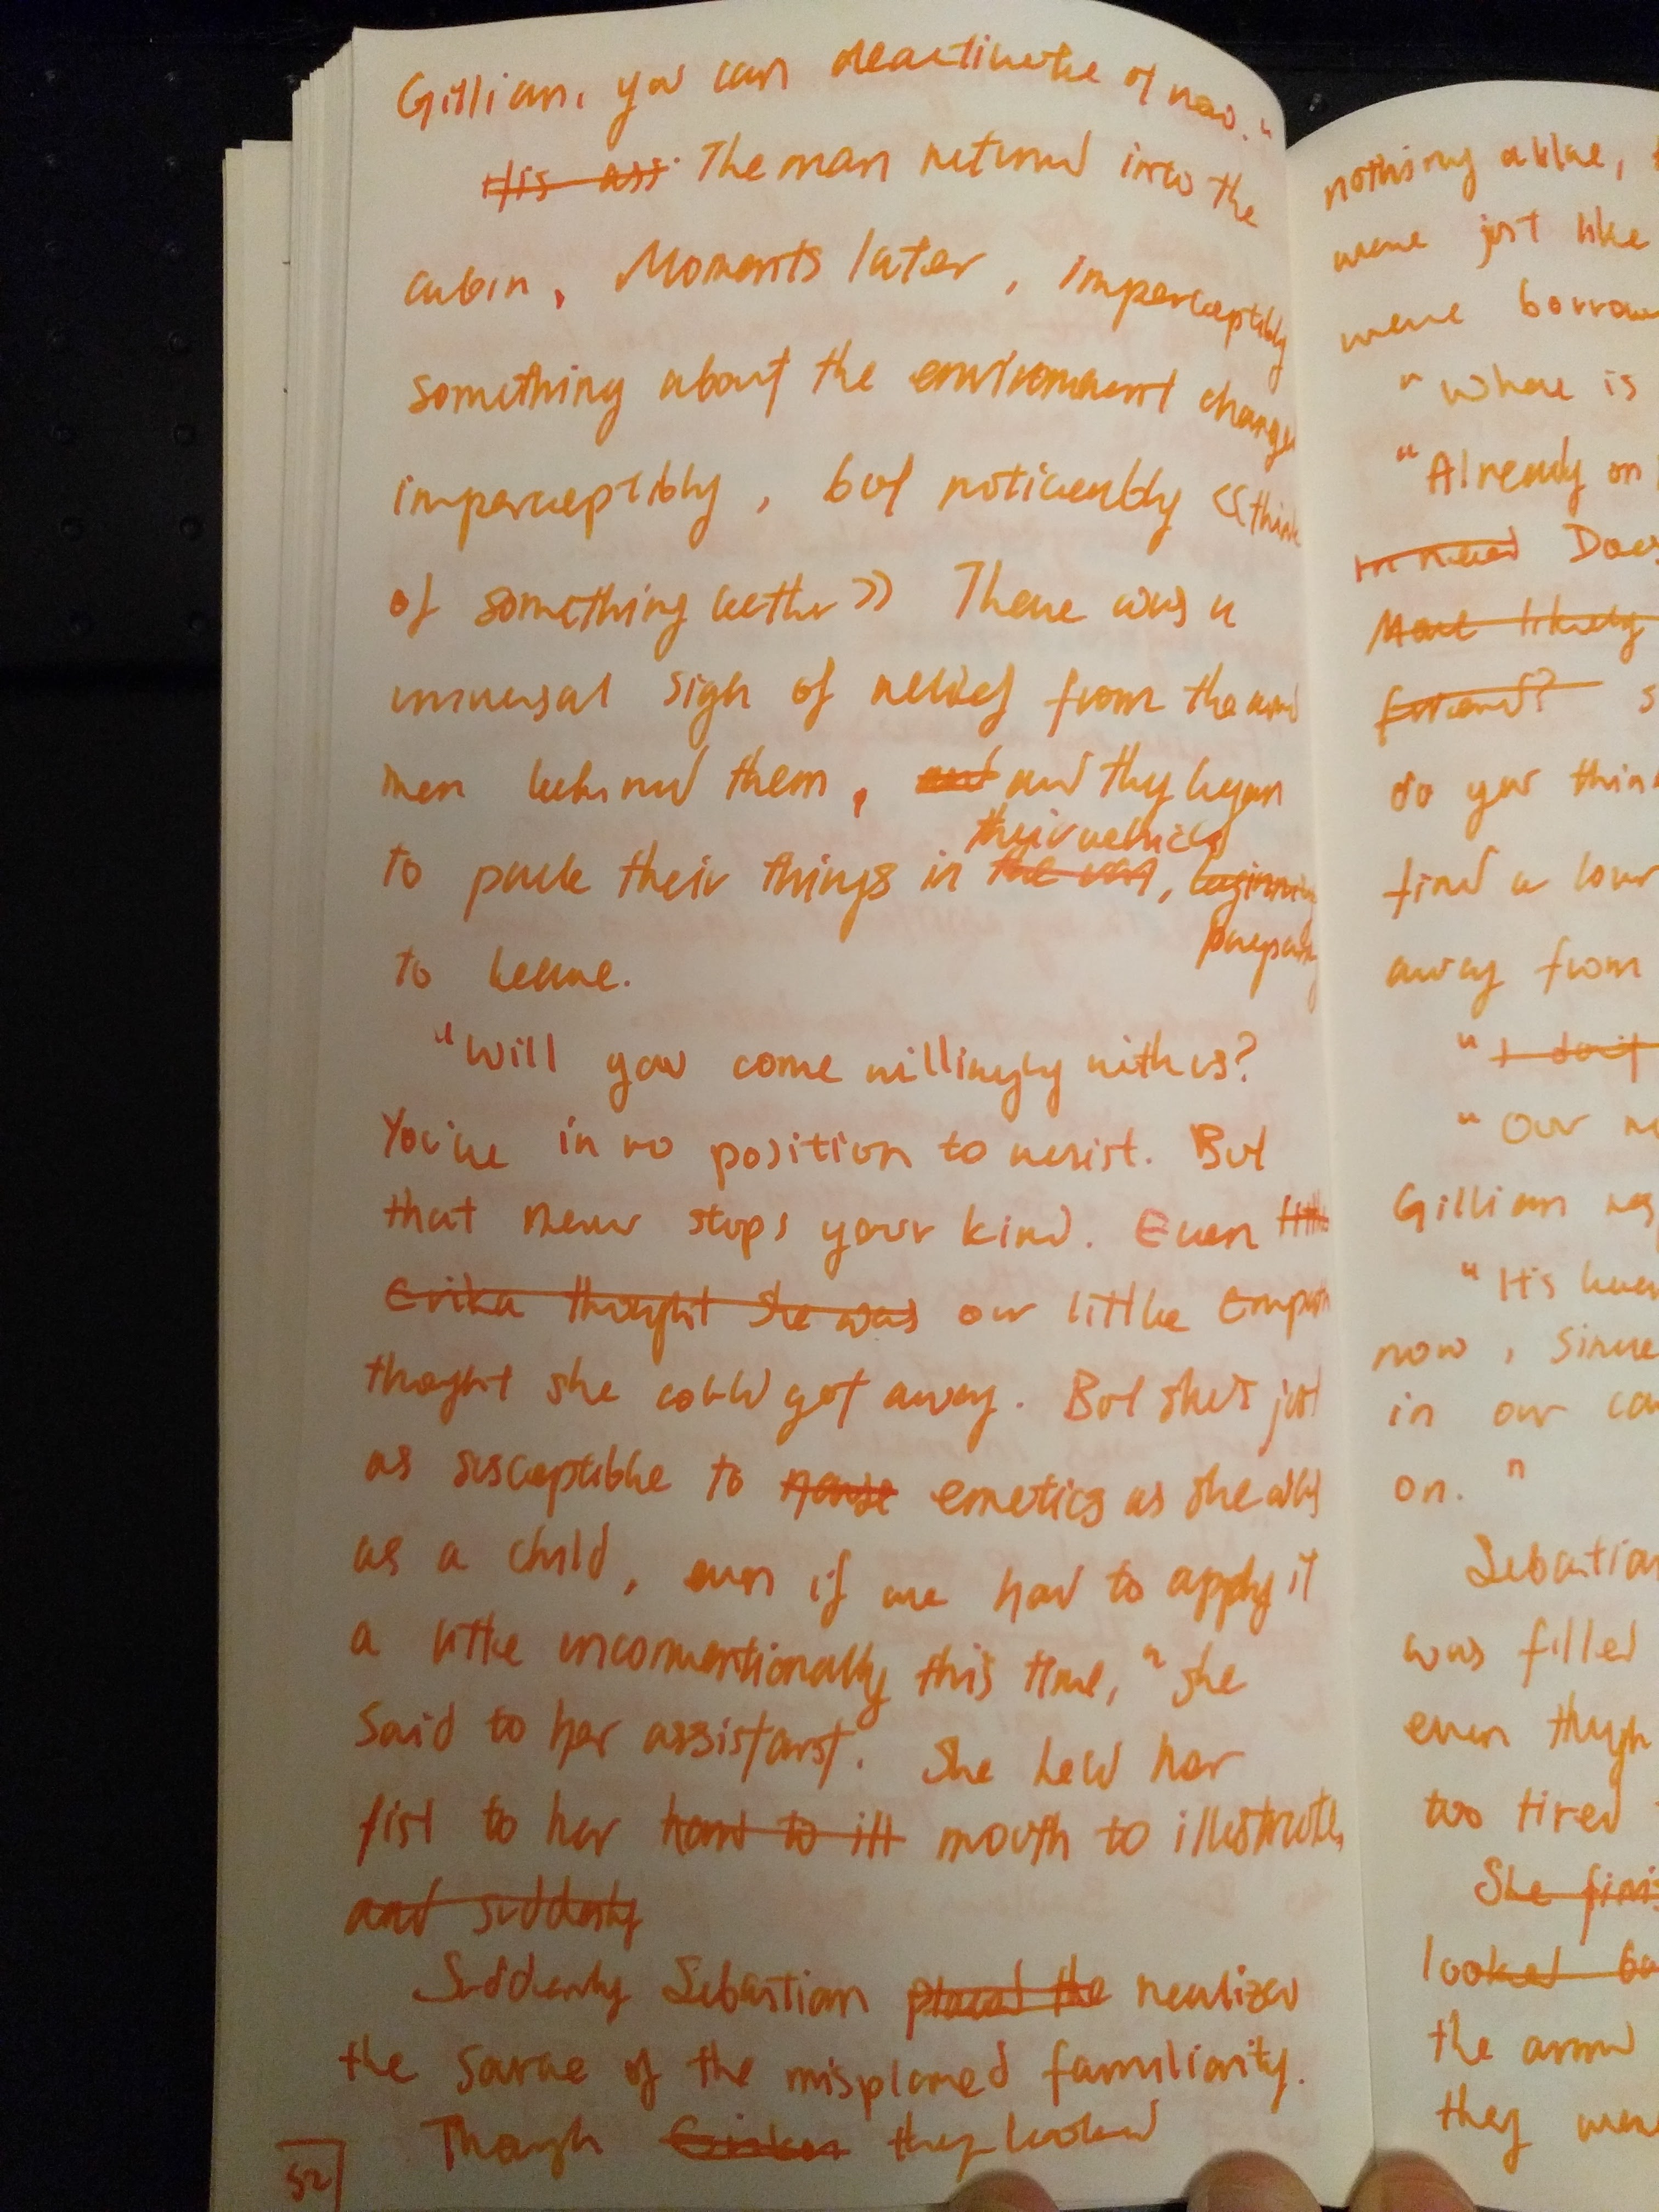 Gillian, you can deactivate it now."
~~His ass.~~ The man returned into the
cabin. Moments later, imperceptibly
something about the environment changed
imperceptibly, but noticeably <<think
of something better>> There was a
universal sigh of relief from the armed
men behind them, ~~and~~ and they began
to pack their things in ~~the van~~ their vehicle, ~~beginning~~
preparing
to leave.
"Will you come willingly with us?
You're in no position to resist. But
that never stops your kind. Even ~~little~~
~~Erika thought she was~~ our little Empath
thought she could get away. But she's just
as susceptible to emetics as she was
as a child, even if we had to apply it
a little unconventionally this time," she
said to her assistant. She held her
fist to her ~~hand to ill~~ mouth to illustrate,
~~and suddenly~~
Suddenly Sebastian ~~placed the~~ realized
the source of the misplaced familiarity.
Though ~~Erika~~ they looked
52
nothing alike,
were just like
were borrow
"Where is
"Already on
~~in need~~ Does
~~Most likely~~
~~friend?~~ s
do you think
find a low
away from
"~~I don't~~
"Our
Gillian
"It's
now, since
in our
on."
Sebastian
was filled
even though
too tired
~~She finis~~
~~looked ba~~
the armed
they were